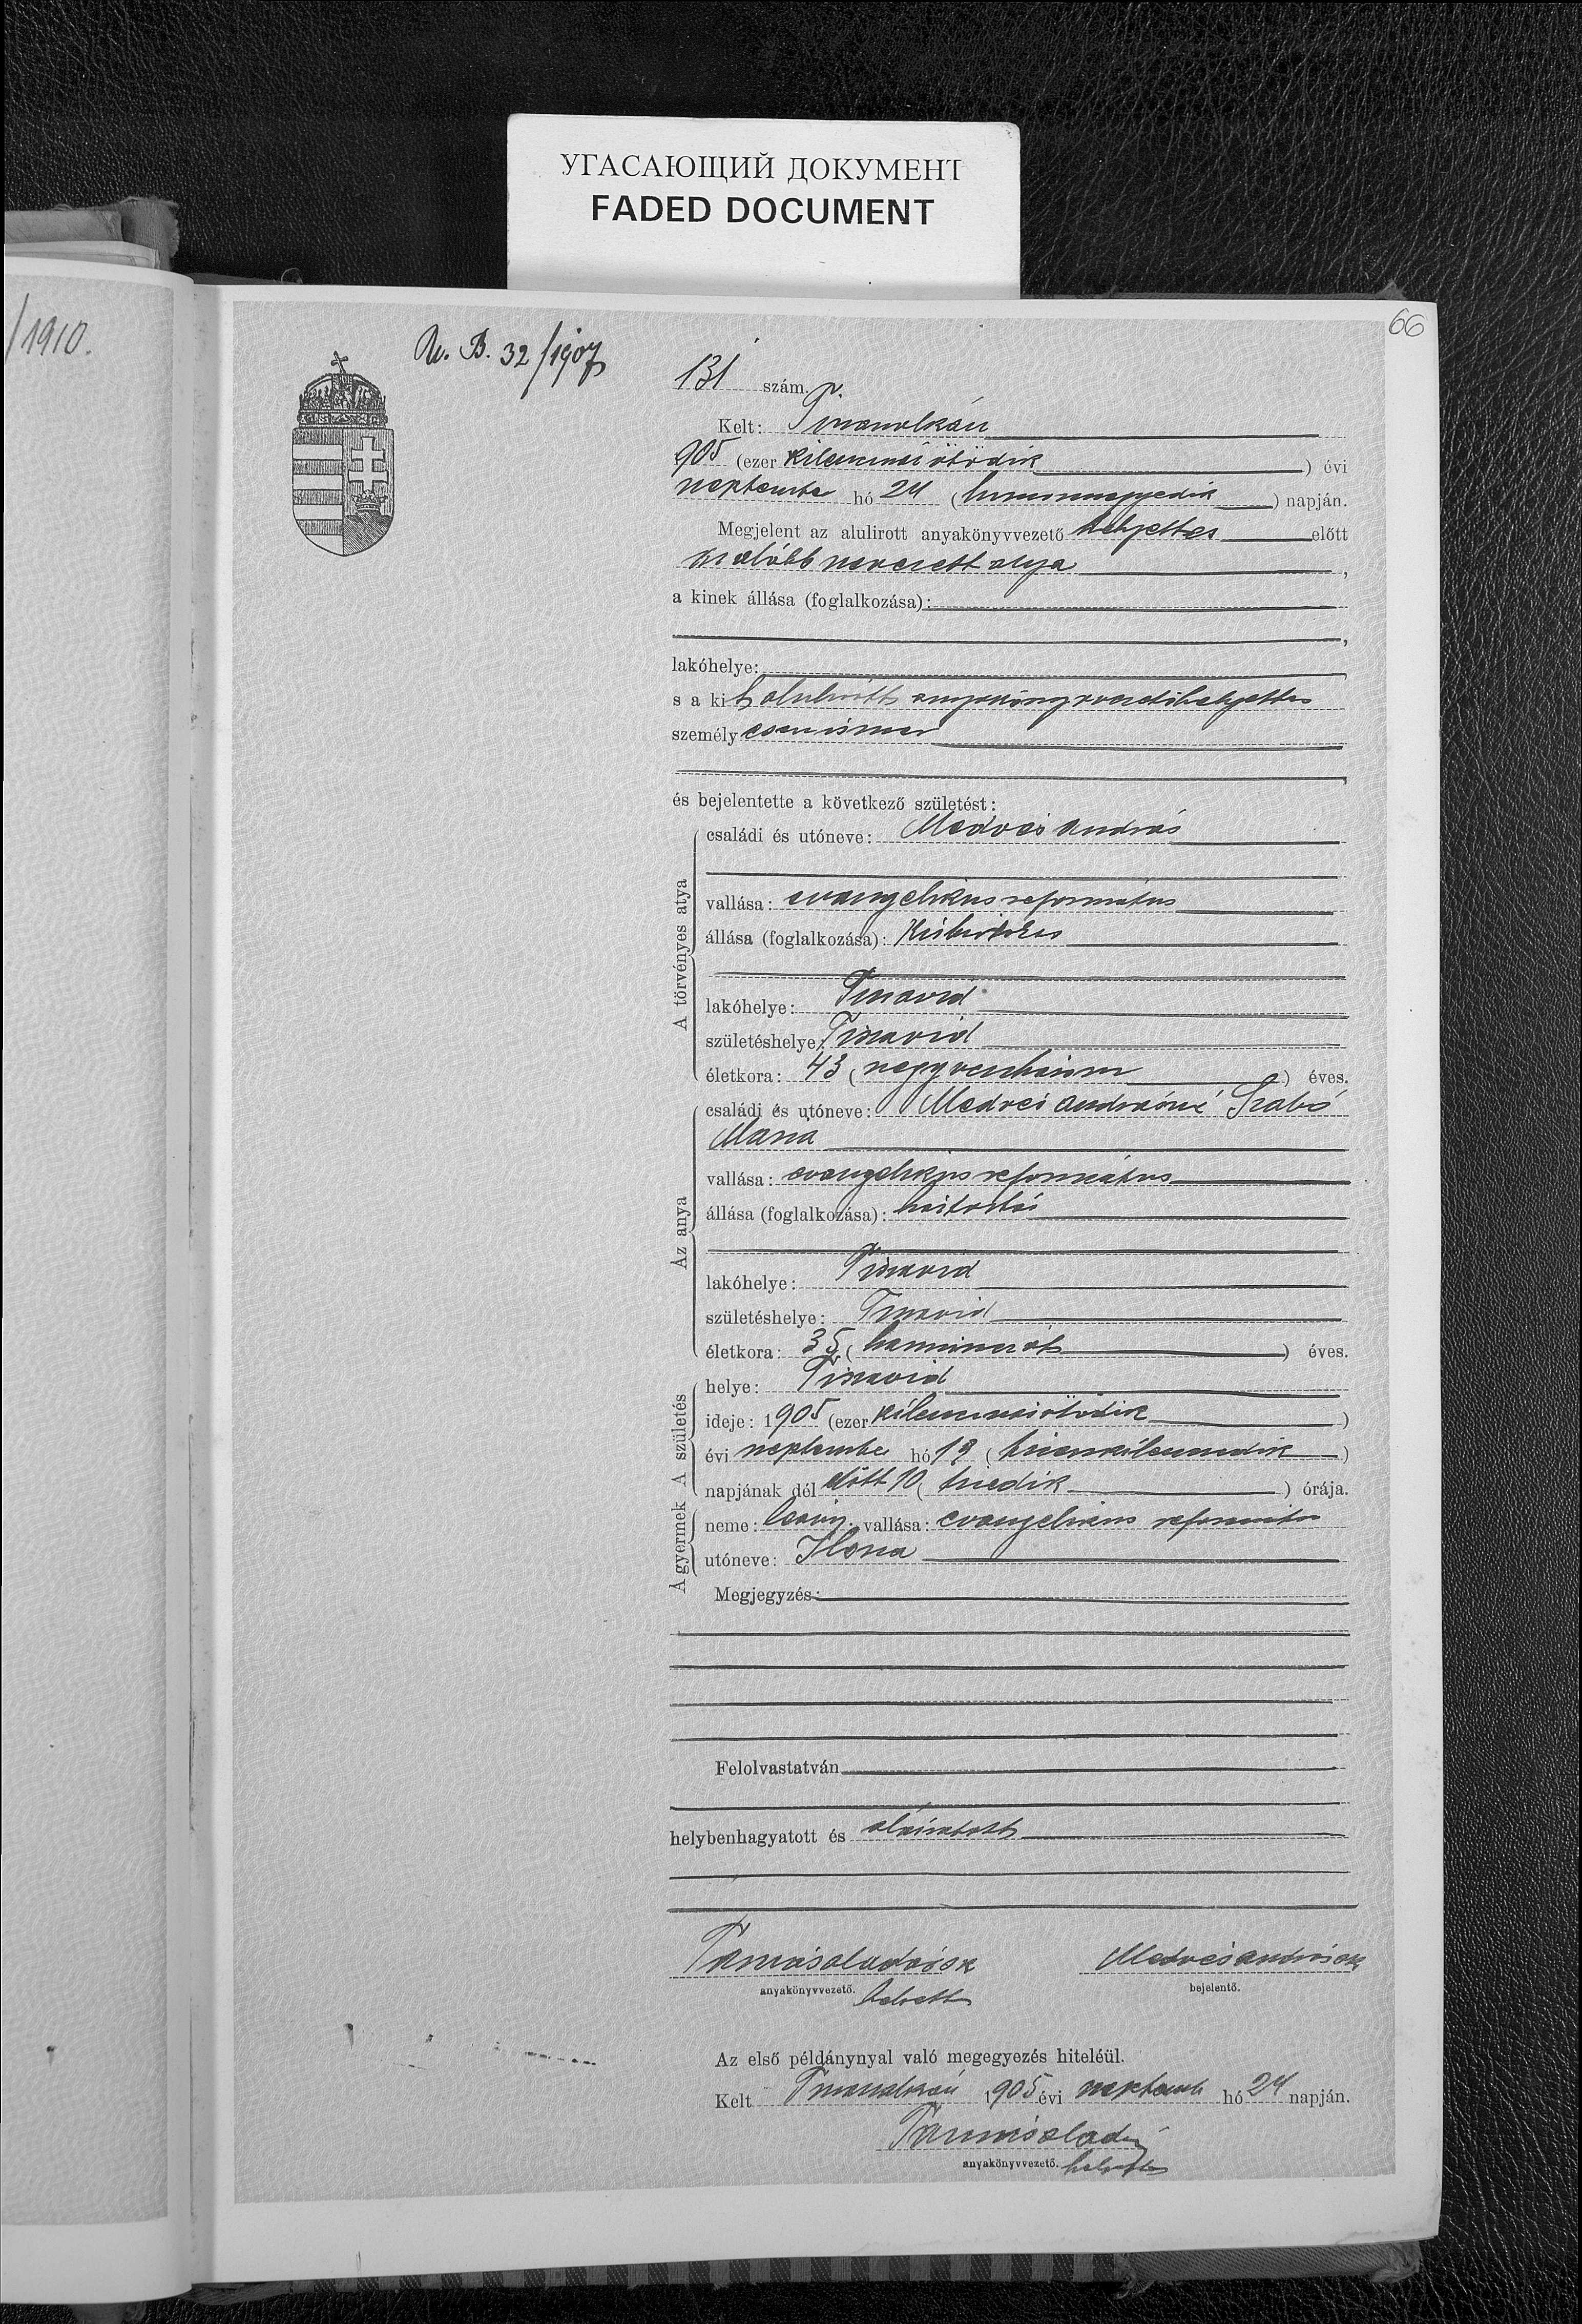 УГАСАЮЩИЙ ДОКУМЕНТ
FADED DOCUMENT
/1910.
66
B. 32/1907
131 szám.
Kelt:
905 (ezer kilenczszáz ötödik) évi
hó 24 ( ) napján.
Megjelent az alulirott anyakönyvvezető helyettes előtt
az alább nevezett atya,
a kinek állása (foglalkozása):
lakóhelye:
s a kit alulirott anyakönyvvezetőhelyettes
személyesen ismer
és bejelentette a következő születést:
A törvényes atya
családi és utóneve: Medvés András
vallása: evangelikus református
állása (foglalkozása): Kisbirtokos
lakóhelye: Tiszavid
születéshelye: Tiszavid
életkora: 43 (negyvenhárom) éves.
Az anya
családi és utóneve: Medvés Andrásné Szabó
Mária
vallása: evangelikus református
állása (foglalkozása):
lakóhelye: Tiszavid
születéshelye: Tiszavid
életkora: 35 (harminczöt) éves.
A születés
helye: Tiszavid
ideje: 1905 (ezer kilenczszázötödik)
évi hó 19 (tizenkilenczedik)
napjának dél előtt 10 (tizedik) órája.
A gyermek
neme: leány. vallása: evangelikus református
utóneve: Ilona
Megjegyzés:
Felolvastatván
helybenhagyatott és aláiratott
Tamás Aladár sk Medvés András sk
anyakönyvvezető. helyett bejelentő.
Az első példánynyal való megegyezés hiteléül.
Kelt 1905 évi hó 24 napján.
Tamás Aladár
anyakönyvvezető. helyettes